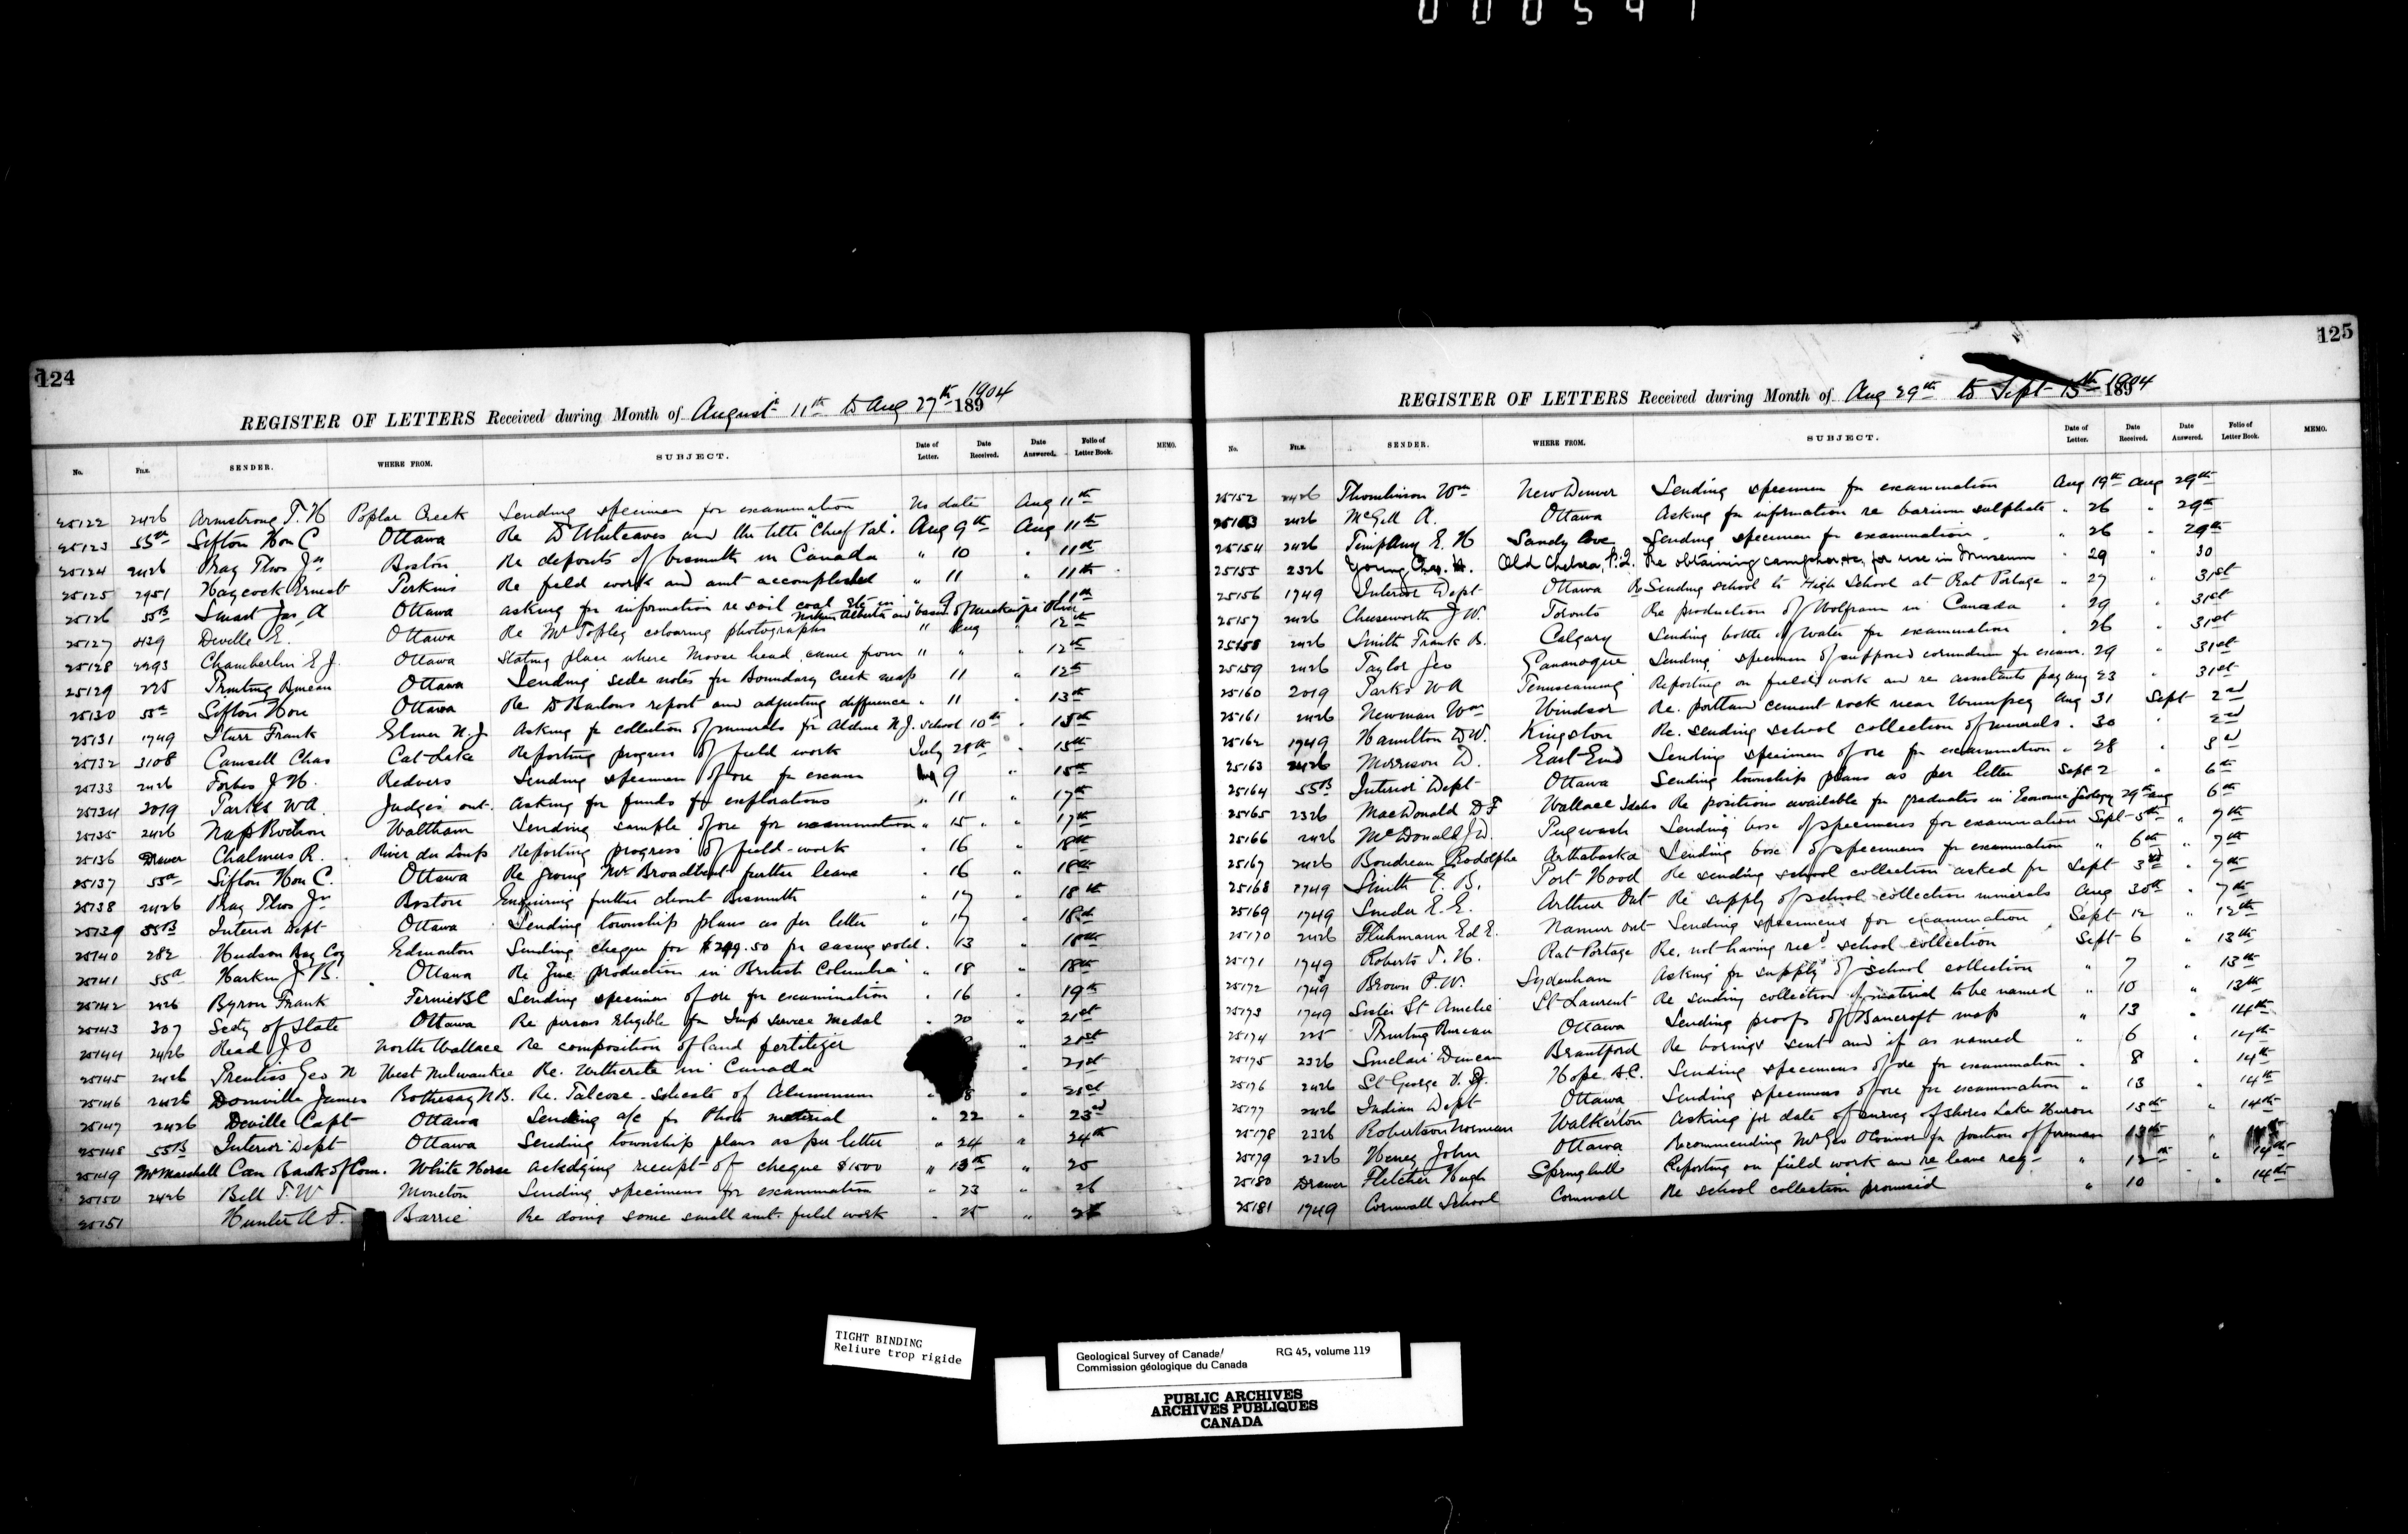 000591
124
REGISTER OF LETTERS Received during Month of August 11th to Aug 27th 1904 189
No. FILE. SENDER. WHERE FROM. SUBJECT. Date of Letter. Date Received. Date Answered. Folio of Letter Book. MEMO.
25122 2426 Armstrong T. H Poplar Creek Sending specimen for examination No date Aug 11th
25123 55a Sifton Hon C Ottawa Re Dr Whiteaves and the title "Chief Pal". Aug 9th Aug 11th
25124 2426 Ray Thos Jr Boston Re deposits of bismuth in Canada " 10 " 11th
25125 2951 Haycock Ernest Perkins Re field work and amt accomplished " 11 " 11th
25126 55B Smart Jas. A Ottawa asking for information re soil coal etc in Northern Alberta and basin of Mackenzie River " 9 11th
25127 429 Deville E. Ottawa Re Mr Topley colouring photographs " Aug " 12th
25128 2293 Chamberlin E J. Ottawa Stating place where Moose head came from " " " 12th
25129 225 Printing Bureau Ottawa Sending side notes for Boundary Creek map 11 " 12th
25130 55a Sifton Hon Ottawa Re Dr Barlows report and adjusting difference " 11 " 13th
25131 1749 Sturr Frank Elmer N.J Asking for collection of minerals for Aldine N.J. school 10th " 15th
25132 3108 Camsell Chas Cat Lake Reporting progress of field work July 28th " 15th
25133 2426 Forbes J H. Redvers Sending specimen of ore for exam Aug 9 " 15th
25134 2019 Parks WA. Judges ont. Asking for funds for explorations " 11 " 17th
25135 2426 Waltham Sending sample of ore for examination " 15 " 17th
25136 Drawer Chalmers R. River du Loup Reporting progress of field-work " 16 18th
25137 55a Sifton Hon C. Ottawa Re giving Mr Broadbent further leave " 16 " 18th
25138 2426 Ray Thos Jr Boston Enquiring further about Bismuth " 17 " 18th
25139 55B Interior Dept Ottawa Sending township plans as per letter " 17 " 18th
25140 282 Hudson Bay Coy Edmonton Sending cheque for $249.50 for casing sold. " 13 " 18th
25141 55a Harkin J B. Ottawa Re Zinc production in British Columbia " 18 " 18th
25142 2426 Byron Frank Fernie BC Sending specimen of ore for examination " 16 " 19th
25143 307 Secty of State Ottawa Re persons Eligible for Imp Service Medal " 20 " 21st
25144 2426 Read J O North Wallace Re composition of land fertilizer " 21st
25145 2426 Prentiss Geo N West Milwaukee Re. Witherite in Canada " 21st
25146 2426 Domville James Rothesay N.B. Re. Talcose - Silicate of Aluminum 8 "
25147 2426 Deville Capt Ottawa Sending a/c for Photo material " 22 " 23rd
25148 55B Interior Dept Ottawa Sending township plans as per letter " 24 " 24th
25149 Mr Marshall Can Bank of Com. White Horse acknowledging receipt of cheque $1500 " 13th " 25
25150 2426 Bell T. W Moncton Sending specimens for examination " 23 " 26
25151 Hunter A F. Barrie Re doing some small amt. field work " 25 "
125
REGISTER OF LETTERS Received during Month of Aug 29th to Sept 15th 1904 189
No. FILE. SENDER. WHERE FROM. SUBJECT. Date of Letter. Date Received. Date Answered. Folio of Letter Book. MEMO.
25152 2426 Thomlinson Wm New Denver Sending specimen for examination Aug 19th Aug 29th
25153 2426 McGill A. Ottawa Asking for information re barium sulphate " 26 " 29th
25154 2426 E. H Sandy Cove Sending specimen for examination " 26 " 29th
25155 2326 Young Chas. H. Old Chelsea, P.Q. Re obtaining camphor etc, for use in Museum " 29 " 30
25156 1749 Interior Dept Ottawa Re Sending school to High School at Rat Portage " 27 " 31st
25157 2426 Cheeseworth J W. Toronto Re production of Wolfram in Canada " 29 31st
25158 2426 Smith Frank B. Calgary Sending bottle of water for examination " 26 " 31st
25159 2426 Taylor Geo Gananoque Sending specimen of supposed corundum for exam. 29 31st
25160 2019 Parks WA Temiscaming Reporting on field work and re assistants pay Aug 23 " 31st
25161 2426 Newman Wm Windsor Re. portland cement rock near Winnipeg Aug 31 Sept 2nd
25162 1749 Hamilton D.W. Kingston Re. sending school collection of minerals. " 30 " 2nd
25163 2426 Morrison D. East End Sending specimen of ore for examination " 28 " 3rd
25164 55B Interior Dept Ottawa Sending township plans as per letter Sept 2 " 6th
25165 2326 MacDonald D F Wallace Idaho Re positions available for graduates in Economic Geology 29th Aug 6th
25166 2426 McDonald J.D. Pugwash Sending box of specimens for examination Sept 5th " 7th
25167 2426 Boudreau Rodolphe Arthabaska Sending box of specimens for examination " 6th " 7th
25168 1749 Smith E. B. Port Hood Re sending school collection asked for Sept 3rd " 7th
25169 1749 Snider E. E. Arthur Ont Re supply of school collection minerals Aug 30th " 7th
25170 2426 Ed E. Namur ont Sending specimens for examination Sept 12 " 12th
25171 1749 Roberts T. H. Rat Portage Re. not having recd school collection Sept 6 " 13th
25172 1749 Brown P.W. Sydenham Asking for supply of school collection " 7 " 13th
25173 1749 Sister St Amelie St Laurent Re sending collection of material to be named " 10 " 13th
25174 225 Printing Bureau Ottawa Sending proofs of Bancroft map " 13 " 14th
25175 2326 Sinclair Duncan Brantford Re borings sent and if as named " 6 14th
25176 2426 St George Hope B.C. Sending specimens of ore for examination " 8 " 14th
25177 2426 Indian Dept Ottawa Sending specimens of ore for examination " 13 " 14th
25178 2326 Robertson Norman Walkerton Asking for date of survey of shores Lake Huron 13th " 14th
25179 2326 Heney John Ottawa Recommending Mr Geo O'Connor for position of foreman 13th "
25180 Drawer Fletcher Hugh Springhill Reporting on field work and re leave req- " 12th " 14th
25181 1749 Cornwall School Cornwall Re school collection promised " 10 " 14th
TIGHT BINDING
Reliure trop rigide
Geological Survey of Canada/ RG 45, volume 119
Commission géologique du Canada
PUBLIC ARCHIVES
ARCHIVES PUBLIQUES
CANADA